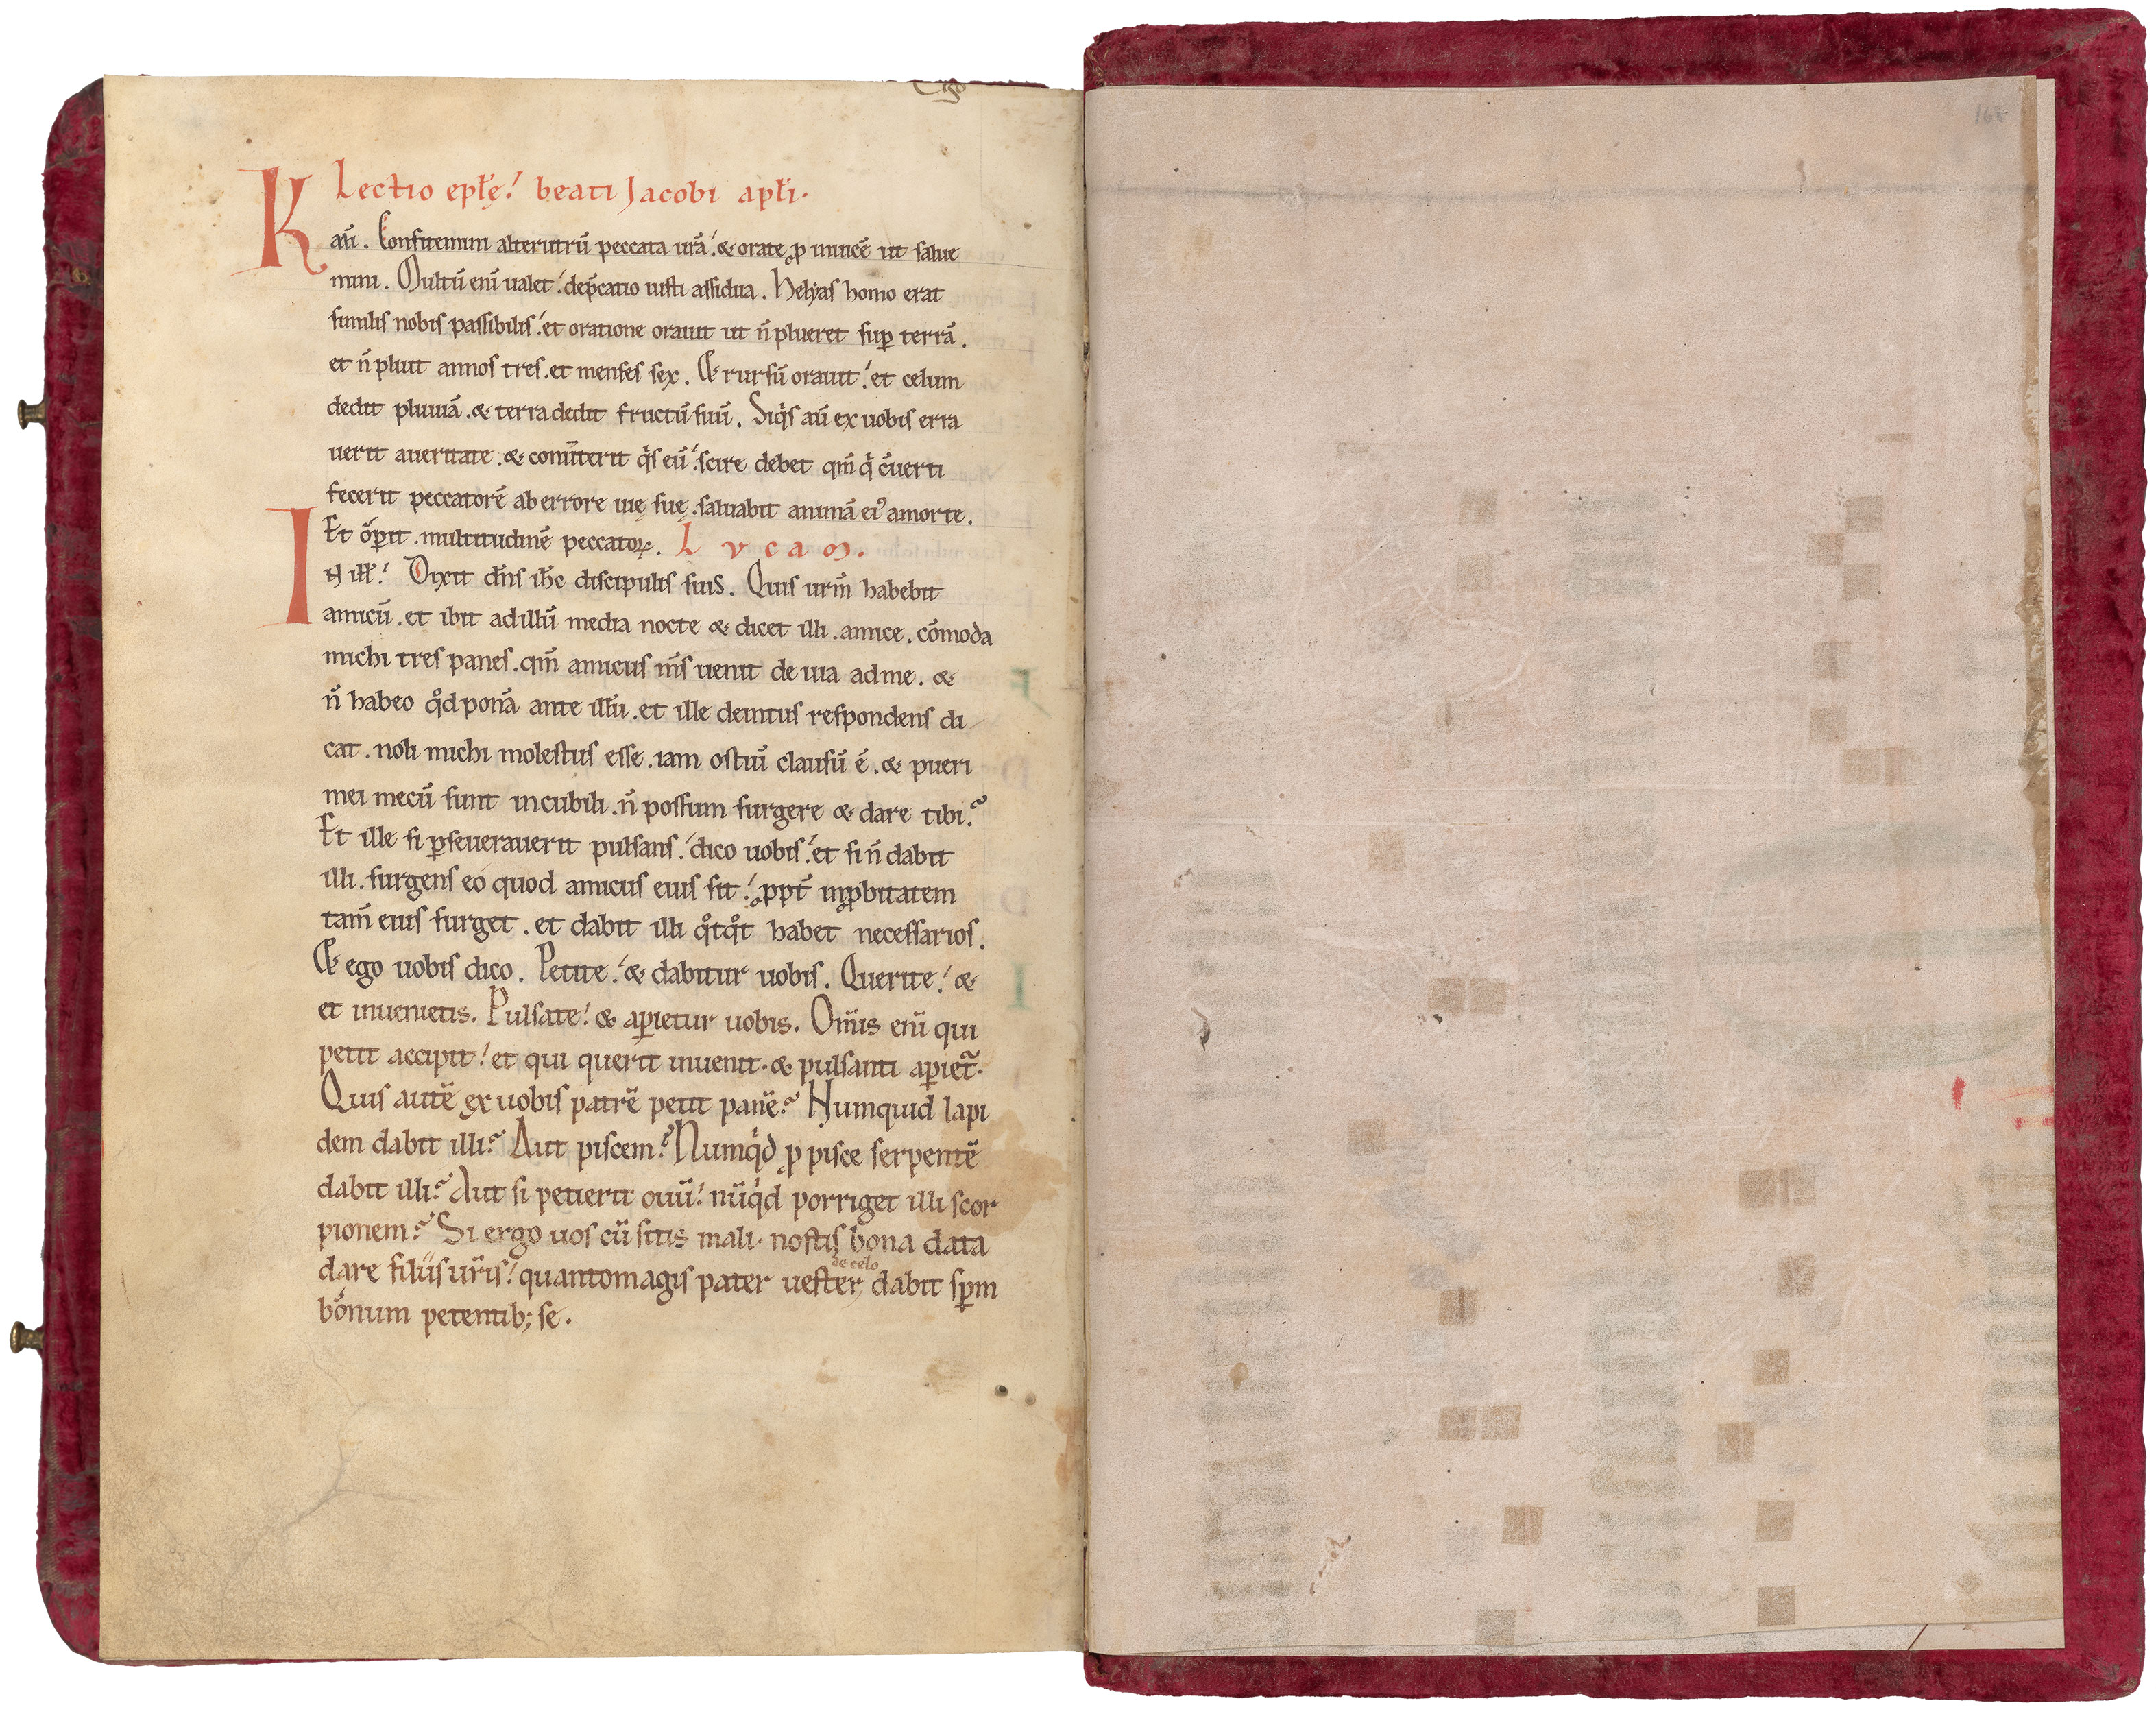 Lectio epl̄ę! beati Jacobi apl̄i.
Kar̄mi. Confitemini alterutrū peccata ur̄a! & orate ꝓ inuicē ut salue
mini. Multū eni᷑ ualet! dep̄catio iusti assidua. Helyas homo erat
similis nobis passibilis! et oratione orauit ut n̄ plueret suꝑ terrā.
et n̄ pluit annos tres. et menses sex. & rursū orauit! et celum
dedit pluuiā. & terra dedit fructū suū. Siq̇s aū ex uobis erra
uerit aueritate. & conu̅terit q̇s eū! scire debet qm̄ q̇ c̄uerti
fecerit peccatorē ab errore uię suę. saluabit animā ei᷒ amorte.
Et óꝑit. multitudinē peccatoꝝ. Lucam.
IN ill̄! Dixit dn̄s ih̄c discipulis suis. Quis ur̄m habebit
amicū. et ibit adillū media nocte & dicet illi. amice. cōmoda
michi tres panes. qm̄ amicus m̄s uenit de uia adme. &
n̄ habeo qd̊ ponā ante illū. et ille deintus respondens di
cat. noli michi molestus esse. iam ostiū clausū ē. & pueri
mei mecū sunt incubili. n̄ possum surgere & dare tibi?
Et ille si ꝑseuerauerit pulsans! dico uobis! et si n̄ dabit
illi. surgens eo quod amicus eius sit! ꝓpt̄ inꝓbitatem
tam̄ eius surget. et dabit illi qo̊tqo̊t habet necessarios.
& ego uobis dico. Petite! & dabitur uobis. Querite! &
et inuenietis. Pulsate! & aꝑietur uobis. Om̄is eni᷑ qui
petit accipit! et qui querit inuenit. & pulsanti aꝑiet᷑.
Quis autē ex uobis patrē petit panē? Numquid lapi
dem dabit illi? Aut piscem? Numq̇d ꝓ pisce serpentē
dabit illi? Aut si petierit ouū! nūq̇d porriget illi scor
pionem? Si ergo uos cū sitis mali. nostis bona data
de celo
dare filiis ur̄is! quantomagis pater uester, dabit sp̄m
bonum petentib; se.
168